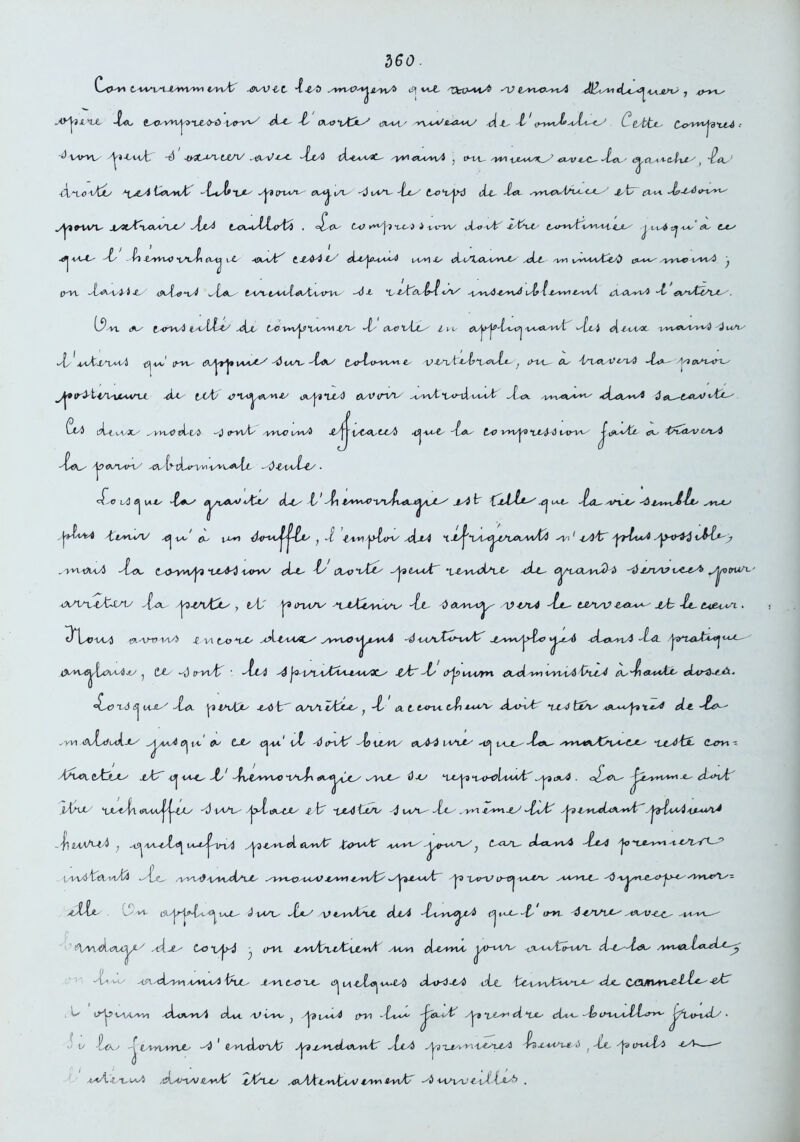 360.
Concurremment avec les moyens que nous venons d'indiquer, on
opère la compression de l'aorte au niveau de l'ombilic. Cette compres-
sion peut s'exercer avec les deux mains, ou mieux avec la gauche, la
droite restant libre pour agir sur le corps de la matrice et au besoin
pour extraire les caillots. La compression doit être continuée jusqu'à ce
que l'hémorrhagie ait cessé depuis une dizaine de minutes au moins;
on laisse alors la circulation se rétablir insensiblement dans l'artère.
On a conseillé de comprimer l'aorte en appliquant les deux mains sur
l'utérus qu'on appuie sur la colonne vertébrale, ou à travers la paroi
postérieure de cet organe après avoir introduit la main dans sa cavité.
Ces deux modes sont moins efficaces que la compression faite à travers
la paroi abdominale seule.
Lorsque la gravité de l'hémorrhagie est telle, que la vie semble ne
plus tenir qu'à un souffle, l'emploi des réfrigérants n'est plus possible,
mais la compression de l'aorte peut rendre de grands services pour
arrêter la perte, et pour retenir le sang vers le cerveau et le cœur.
Nous avons encore deux moyens surtout employés dans la pratique
anglaise, ce sont: les spiritueux et l'opium administrés à haute dose.
Lorsque la perte est arrêtée, l'accoucheur doit rester auprès de la
malade jusqu'à ce qu'il soit bien assuré que la matrice reste con-
tractée et que l'hémorrhagie ne se reproduit pas. La femme doit
être réchauffée sur place et rester sur le même lit pendant plusieurs
heures, quelquefois pendant tout un jour, car dans les premiers
instants le moindre mouvement peut provoquer une syncope mor-
telle. On applique sur le ventre des linges que l'on serre avec un
bandage de corps; on entretient un demi jour autour de la malade;
on lui administre encore quelques doses de teinture de cannelle et
d'opium dans du vin, puis on lui fait prendre du bouillon froid.
Si la femme s'endort pendant les premières heures, le pouls et
l'utérus doivent être attentivement surveillés.